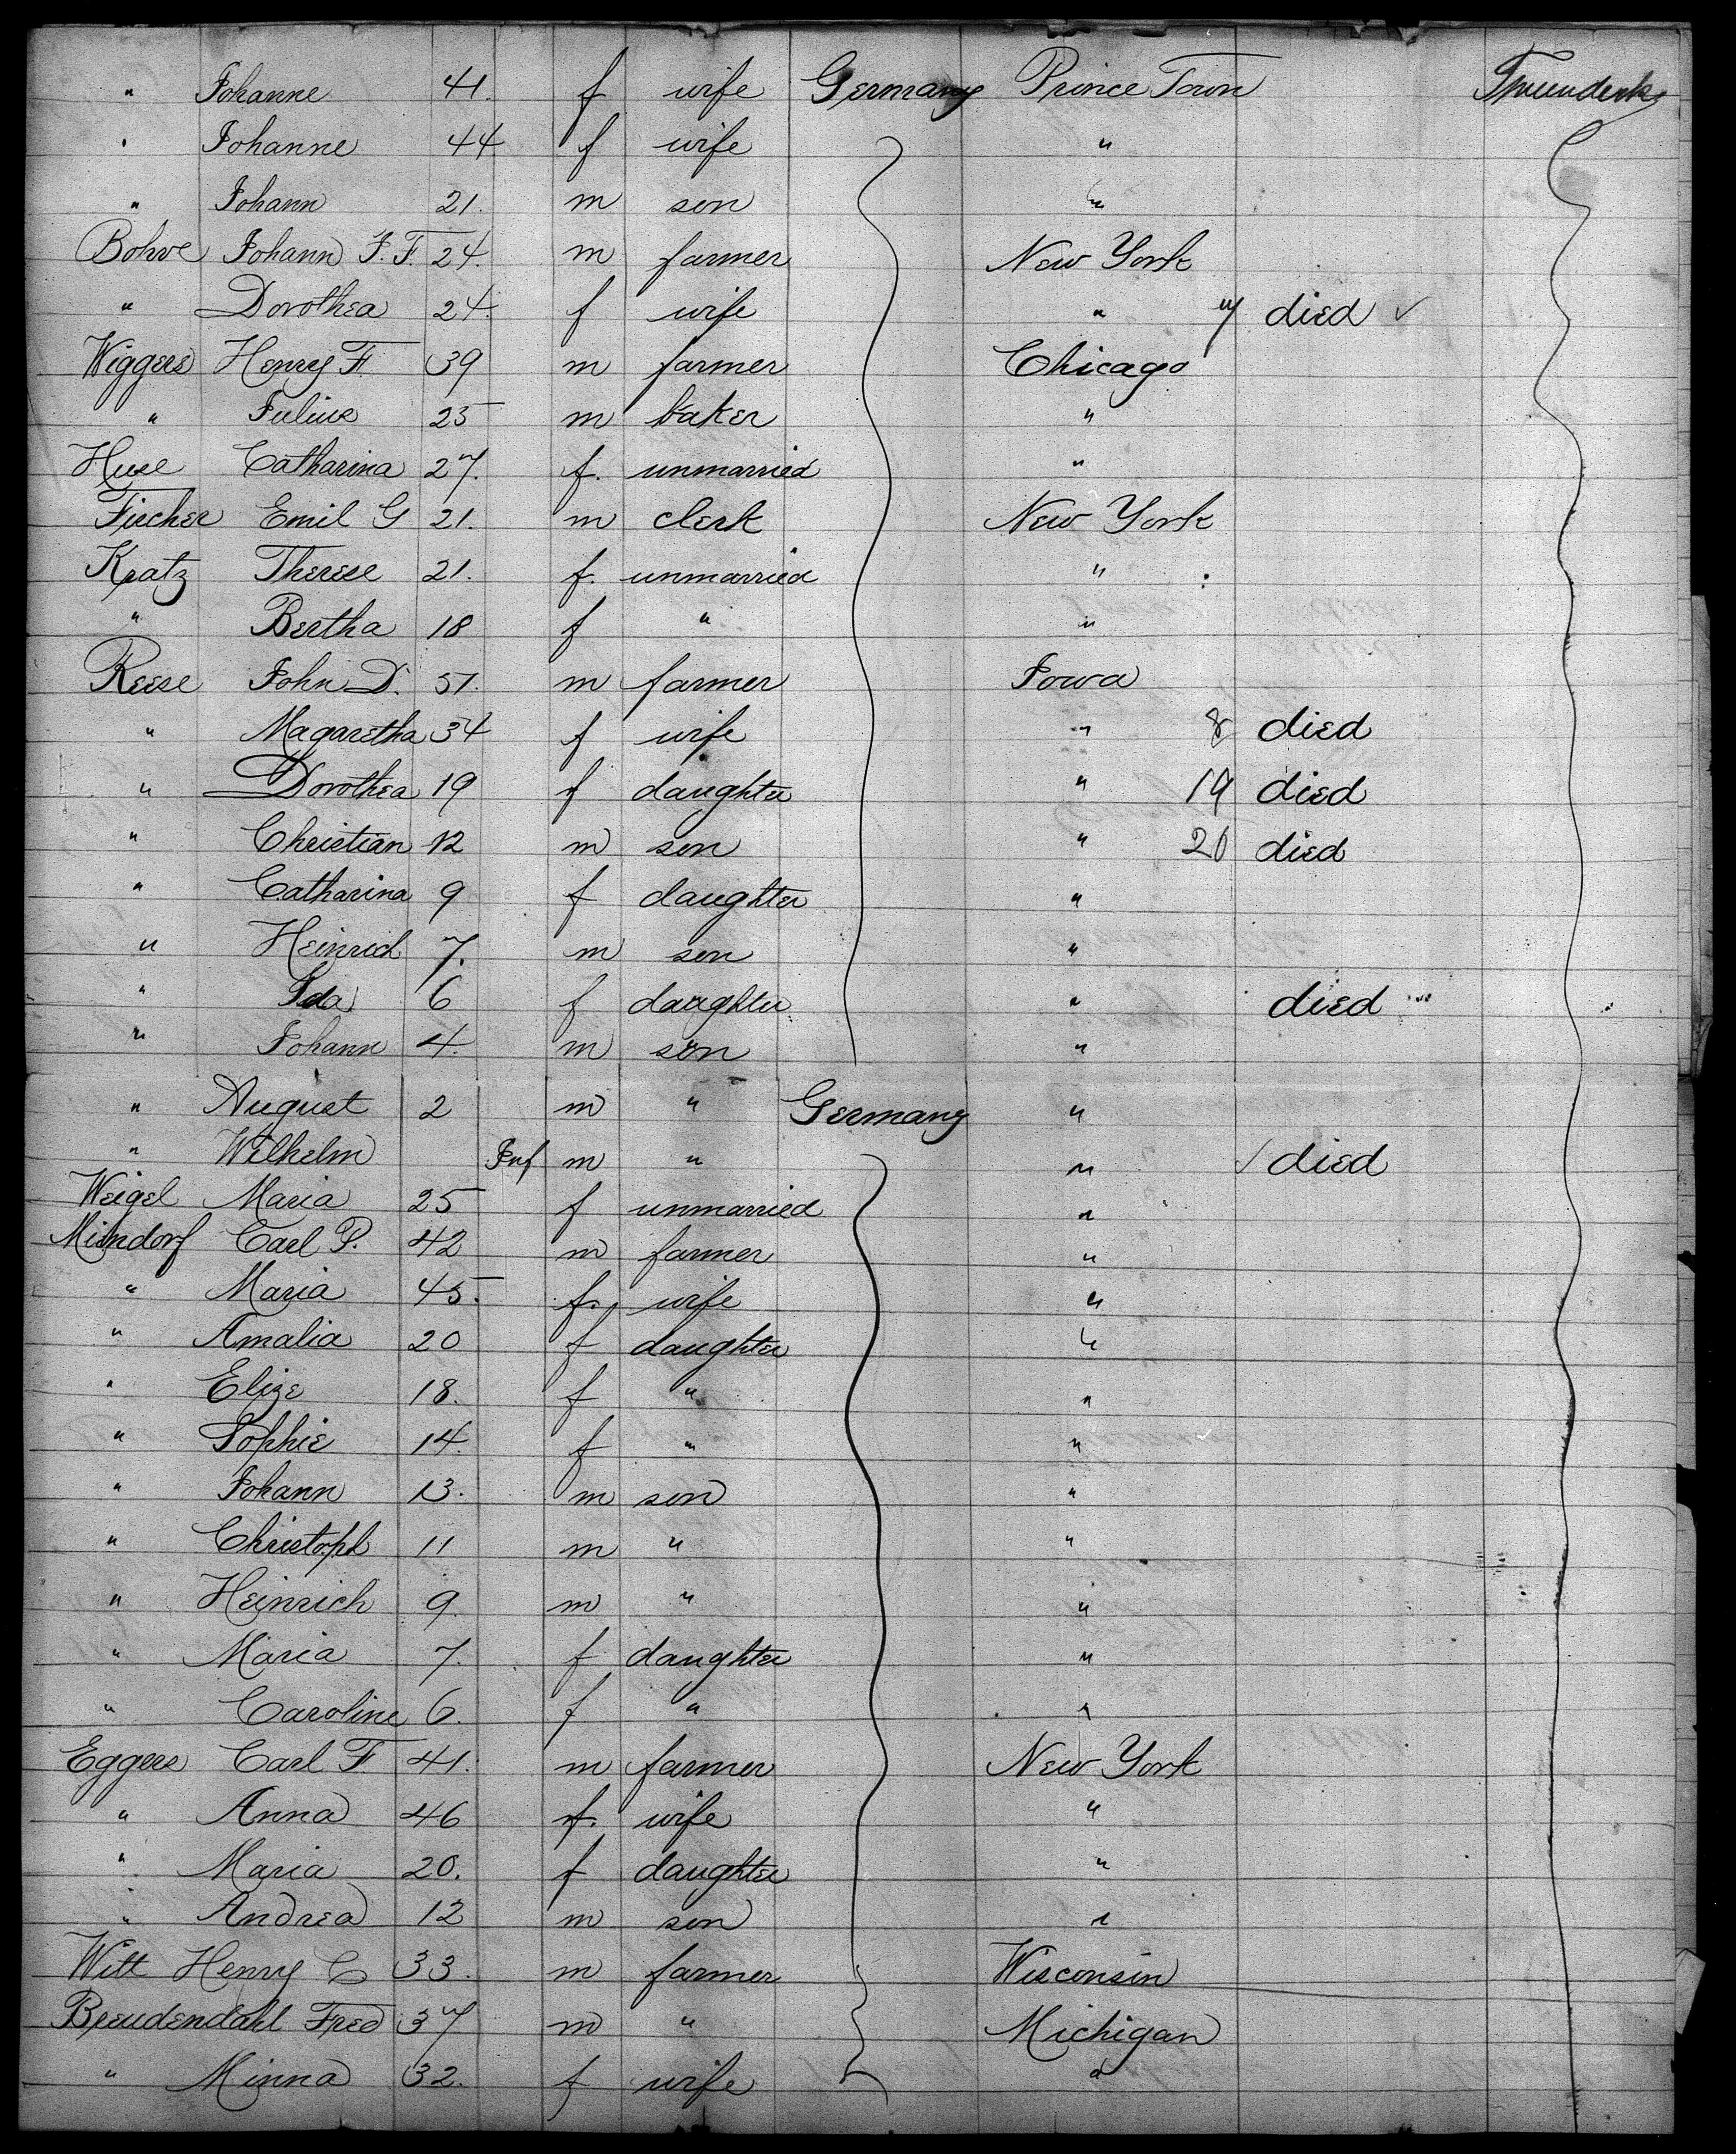 " Johanne 41. f wife Germany Prince Town
" Johanne 44 f wife "
" Johann 21. m son "
Bohve Johann J. F. 24. m farmer New York
" Dorothea 24. f wife " died ✓
Wiggers Henry F. 39 m farmer Chicago
" Julius 25 m baker "
Huse Catharina 27. f. unmarried "
Fischer Emil G 21. m clerk New York
Kratz Therese 21. f. unmarried "
" Bertha 18 f " "
Reese John D. 51. m farmer Iowa
" Magaretha 34 f wife " 8 died
" Dorothea 19 f daughter " 19 died
" Christian 12 m son " 20 died
" Catharina 9 f daughter "
" Heinrich 7. m son "
" Ida 6 f daughter " died
" Johann 4. m son "
" August 2 m " Germany "
" Wilhelm Inf m " " ✓ died
Weigel Maria 25 f unmarried "
Misndorf Carl P. 42 m farmer "
" Maria 45. f. wife "
" Amalia 20 f daughter "
" Elize 18. f " "
" Sophie 14. f " "
" Johann 13. m son "
" Christoph 11 m " "
" Heinrich 9. m " "
" Maria 7. f daughter "
" Caroline 6. f " "
Eggers Carl F. 41. m farmer New York
" Anna 46 f. wife "
" Maria 20. f daughter "
" Andrea 12 m son "
Witt Henry C 33. m farmer Wisconsin
Breudendahl Fred 37 m " Michigan
" Minna 32. f wife "